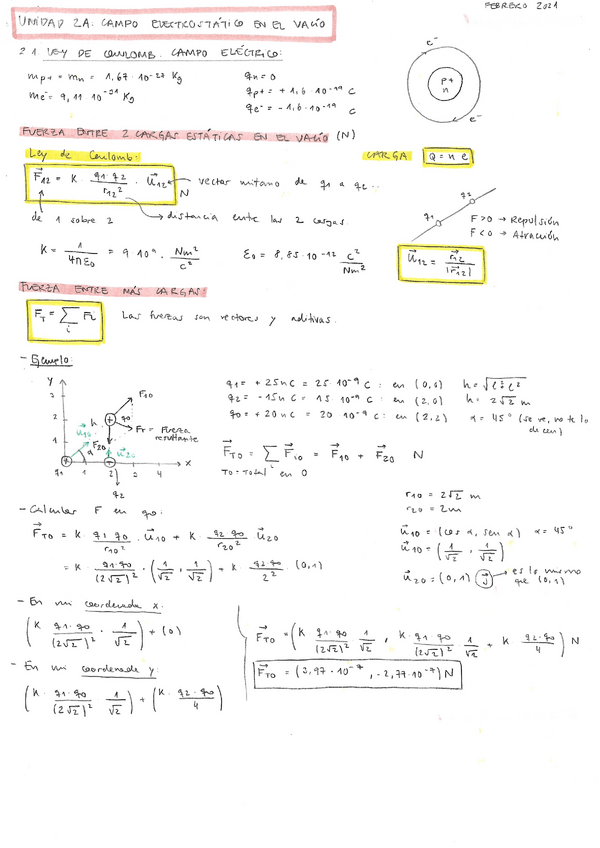 FEBRERO 2021
UNIDAD 2A: CAMPO ELECTROSTÁTICO EN EL VACÍO
2.1. LEY DE COULOMB. CAMPO ELÉCTRICO:
mp+ = mn = 1,67·10⁻²⁷ Kg
me⁻ = 9,11·10⁻³¹ Kg
qn = 0
qp+ = +1,6·10⁻¹⁹ C
qe⁻ = -1,6·10⁻¹⁹ C
e⁻
p+
n
e⁻
FUERZA ENTRE 2 CARGAS ESTÁTICAS EN EL VACÍO (N)
Ley de Coulomb:
CARGA Q = n e
F⃗12 = K · q1·q2 / r12² · u⃗12 N → vector unitario de q1 a q2
de 1 sobre 2
→ distancia entre las 2 cargas.
q1 q2
F>0 → Repulsión
F<0 → Atracción
K = 1/4πε0 = 9·10⁹ · Nm²/C²
ε0 = 8,85·10⁻¹² C²/Nm²
u⃗12 = r⃗12 / |r⃗12|
FUERZA ENTRE MÁS CARGAS:
F⃗T = Σi F⃗i
Las fuerzas son vectores y aditivas.
- Ejemplo:
y
3
2
1
1 2 3 4 x
F10
q0
h
FT = Fuerza resultante
F20
u⃗10
α
u⃗20
q1
q2
q1 = +25nC = 25·10⁻⁹ C : en (0,0)
q2 = -15nC = 15·10⁻⁹ C : en (2,0)
q0 = +20nC = 20·10⁻⁹ C : en (2,2)
h = 2√2 m
α = 45° (se ve, no te lo dicen)
F⃗T0 = Σ F⃗i0 = F⃗10 + F⃗20 N
T0 = Total en 0
- Calcular F en q0:
r10 = 2√2 m
r20 = 2m
F⃗T0 = K q1·q0 / r10² · u⃗10 + K · q2·q0 / r20² u⃗20
u⃗10 = (cos α, sen α) α = 45°
u⃗10 = (1/√2, 1/√2)
= K · q1·q0 / (2√2)² · (1/√2, 1/√2) + K · q2·q0 / 2² (0,1)
u⃗20 = (0,1) (j⃗) → es lo mismo que (0,1)
- En mi coordenada x:
(K q1·q0 / (2√2)² · 1/√2) + (0)
- En mi coordenada y:
(K · q1·q0 / (2√2)² 1/√2) + (K · q2·q0 / 4)
F⃗T0 = (K q1·q0 / (2√2)² 1/√2 , K · q1·q0 / (2√2)² 1/√2 + K q2·q0 / 4) N
F⃗T0 = (3,97·10⁻⁷, -2,77·10⁻⁷) N